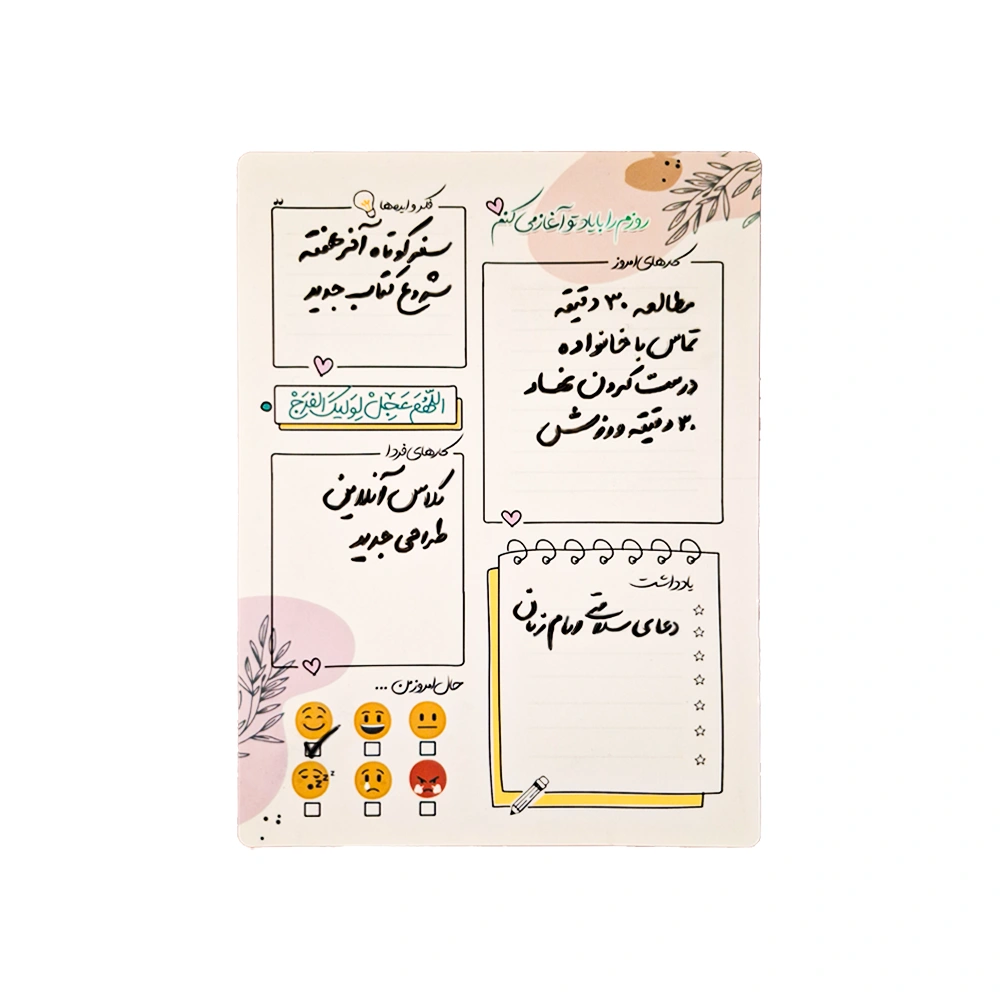 روزم را با یاد تو آغاز می کنم
کارهای امروز
مطالعه ۳۰ دقیقه
تماس با خانواده
درست کردن نهار
۳۰ دقیقه ورزش
یادداشت
دعای سلامتی امام زمان
فکر و ایده‌ها
سفر کوتاه آخر هفته
شروع کتاب جدید
اللهم عجل لولیک الفرج
کارهای فردا
کلاس آنلاین
طراحی جدید
حال امروز من ...